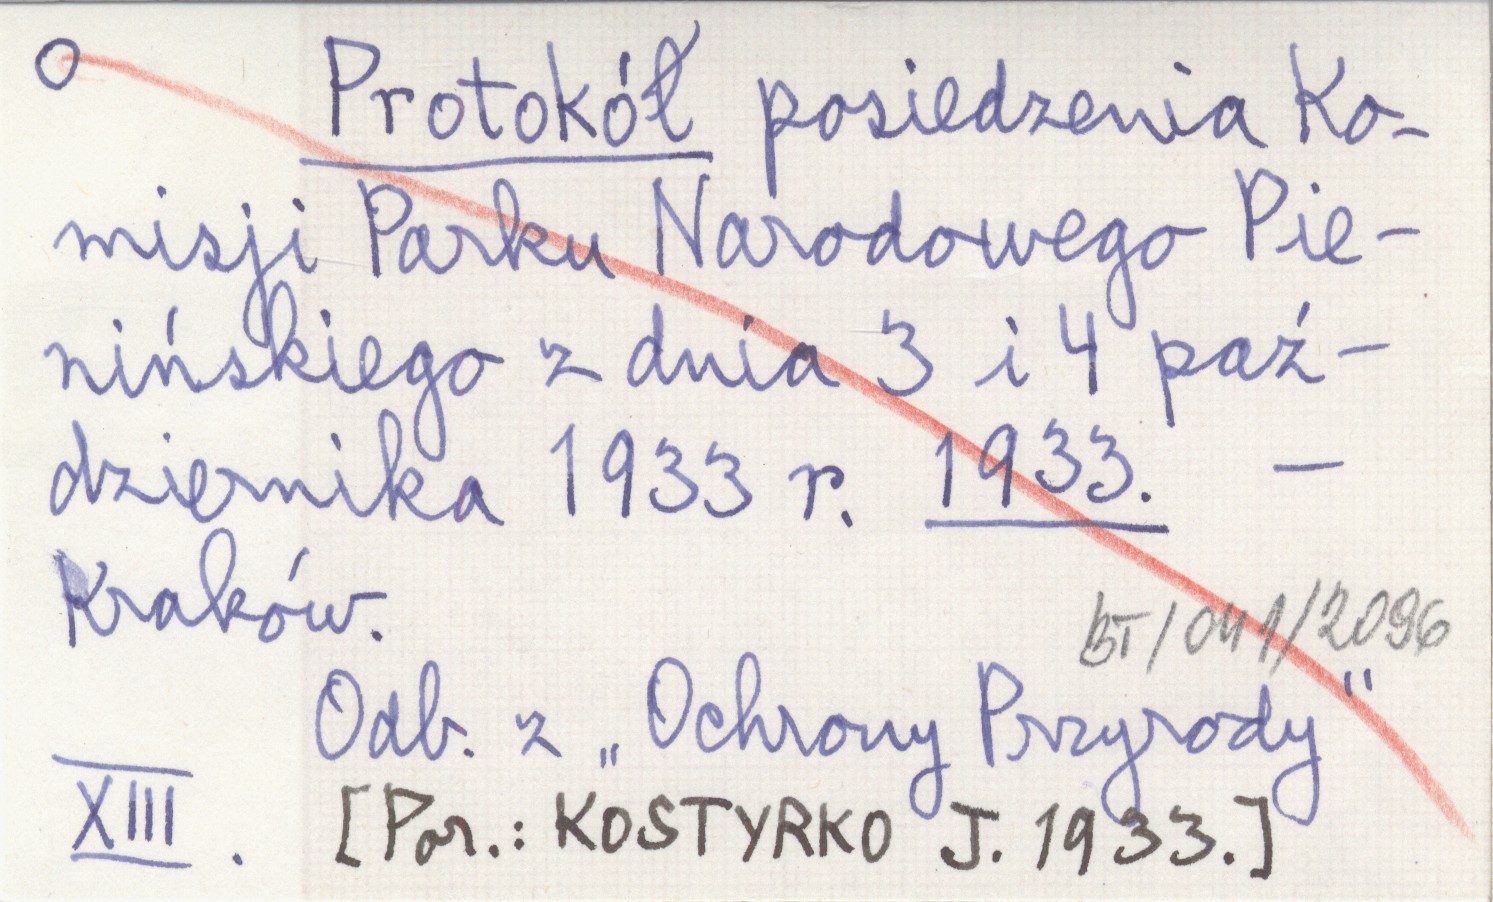 Protokół posiedzenia Ko-
misji Parku Narodowego Pie-
nińskiego z dnia 3 i 4 paź-
dziernika 1933 r. 1933. -
Kraków.
BT/041/2096
Odb. z „Ochrony Przyrody"
XIII. [Por.: KOSTYRKO J. 1933.]